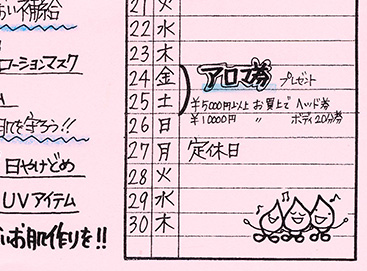 おい補給
ローションマスク
肌を守ろう!!
日やけどめ
UVアイテム
いお肌作りを!!
21 火
22 水
23 木
24 金 アロマ券 プレゼント
25 土 ¥5000円以上 お買上で ヘッド券
26 日 ¥10000円 〃 ボディ20分券
27 月 定休日
28 火
29 水
30 木